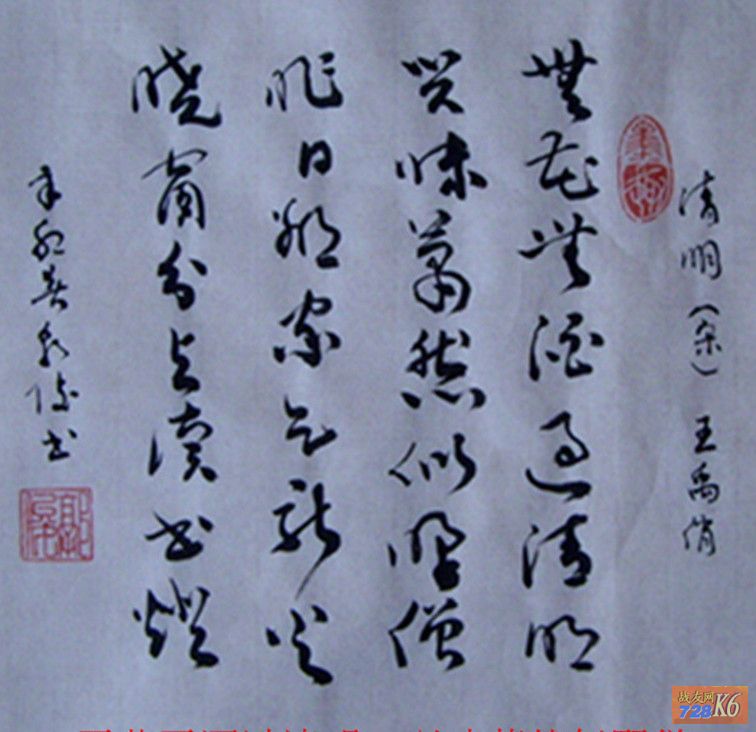 清明（宋）王禹偁
無花無酒過清明
興味蕭然似野僧
昨日鄰家乞新火
曉窗分与讀書燈
辛卯春書
战友网
728K6